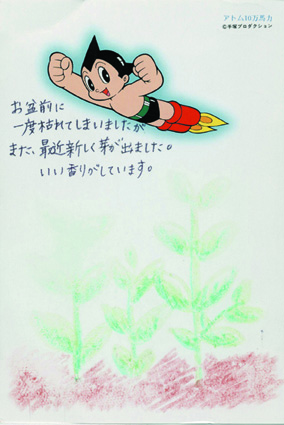 アトム10万馬力
©手塚プロダクション
お盆前に
一度枯れてしまいましたが
また、最近新しく芽が出ました。
いい香りがしています。